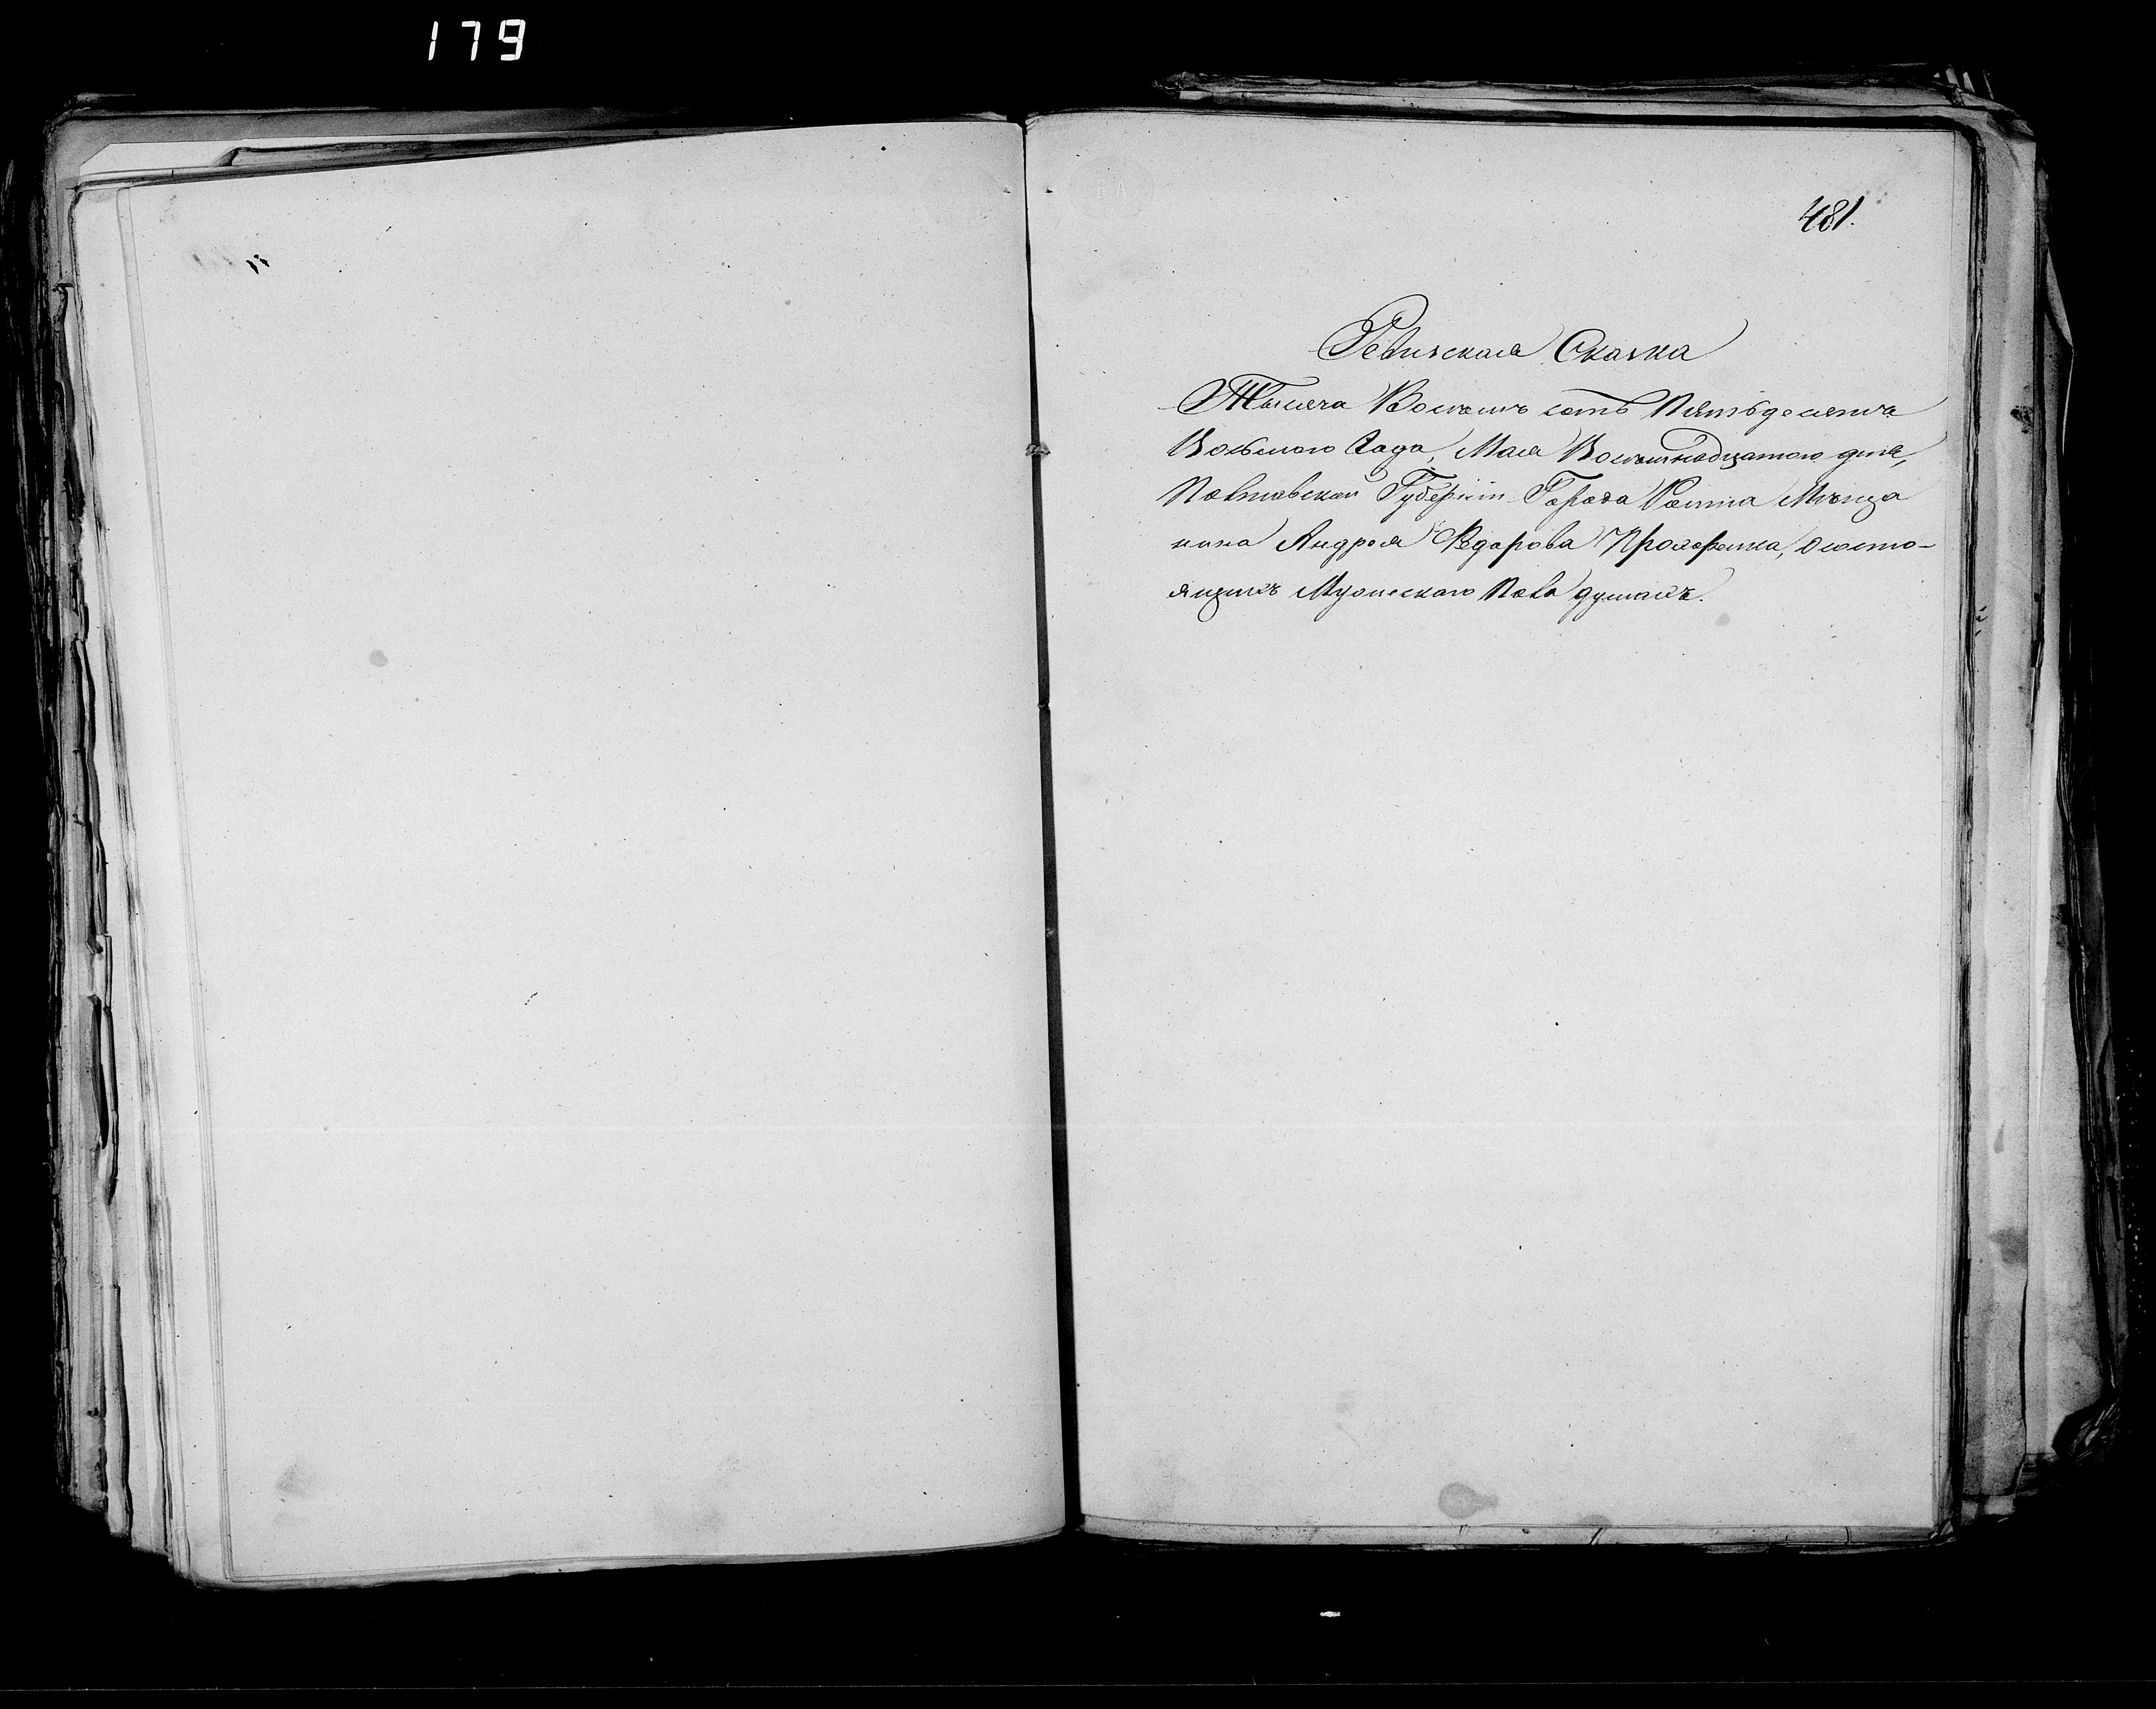 179
481.
Ревизская Сказка
Тысяча Восемь сотъ Пятьдесятъ
Восьмого Года, Мая Восемнадцатого дня,
Полтавской Губерніи Города Ромна Мѣща
нина Андрея Федорова о состо-
ящихъ Мужескаго Пола душахъ.